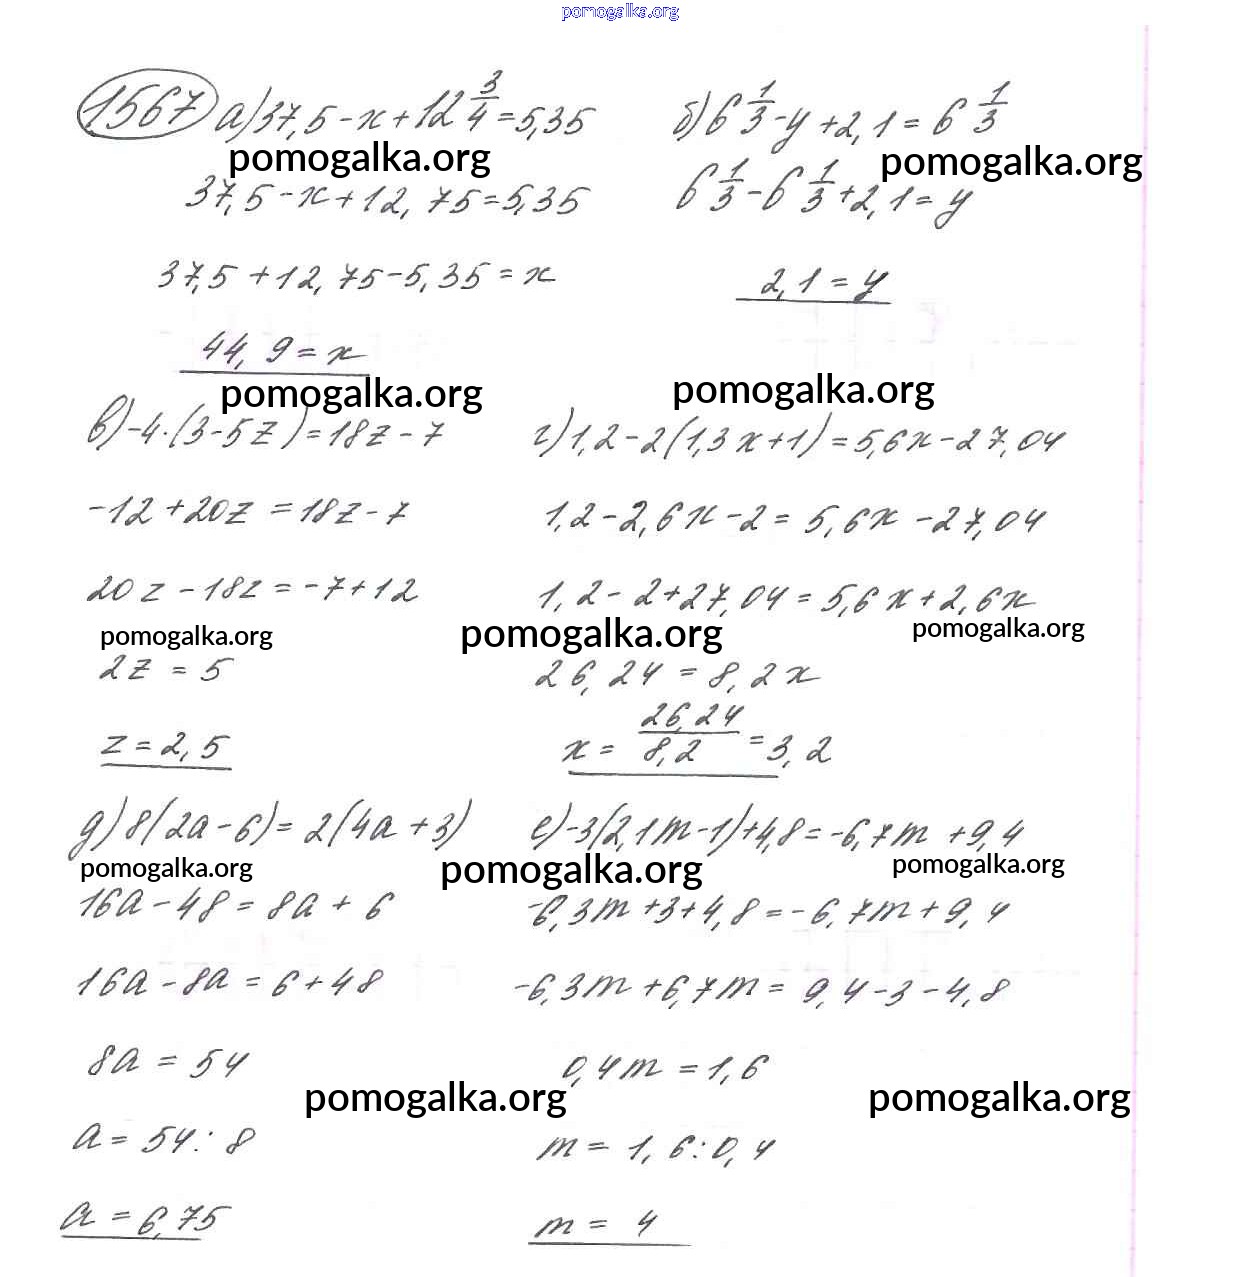 pomogalka.org
1567 а) 37,5 - x + 12 3/4 = 5,35
б) 6 1/3 - y + 2,1 = 6 1/3
pomogalka.org
pomogalka.org
37,5 - x + 12,75 = 5,35
6 1/3 - 6 1/3 + 2,1 = y
37,5 + 12,75 - 5,35 = x
2,1 = y
44,9 = x
pomogalka.org
pomogalka.org
в) -4·(3 - 5z) = 18z - 7
г) 1,2 - 2(1,3x + 1) = 5,6x - 27,04
-12 + 20z = 18z - 7
1,2 - 2,6x - 2 = 5,6x - 27,04
20z - 18z = -7 + 12
1,2 - 2 + 27,04 = 5,6x + 2,6x
pomogalka.org
pomogalka.org
pomogalka.org
2z = 5
26,24 = 8,2x
z = 2,5
x = 26,24/8,2 = 3,2
д) 8(2a - 6) = 2(4a + 3)
е) -3(2,1m - 1) + 4,8 = -6,7m + 9,4
pomogalka.org
pomogalka.org
pomogalka.org
16a - 48 = 8a + 6
-6,3m + 3 + 4,8 = -6,7m + 9,4
16a - 8a = 6 + 48
-6,3m + 6,7m = 9,4 - 3 - 4,8
8a = 54
0,4m = 1,6
pomogalka.org
pomogalka.org
a = 54 : 8
m = 1,6 : 0,4
a = 6,75
m = 4